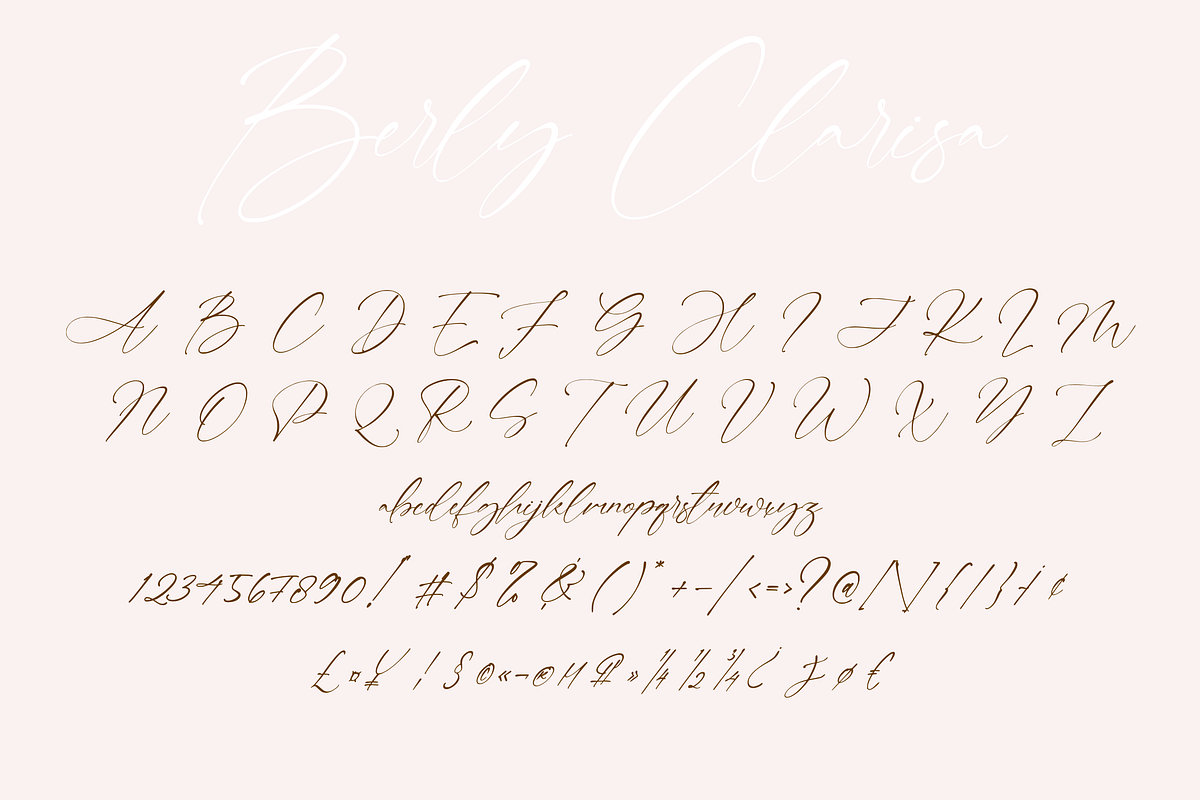 Berly Clarisa
A B C D E F G H I J K L M
N O P Q R S T U V W X Y Z
abcdefghijklmnopqrstuvwxyz
1234567890! # $ % & ( ) * + - / < = > ? @ [ \ ] { | } ¢
£ ¤ ¥ ¦ § © « ® » ¼ ½ ¾ ¿ ø €